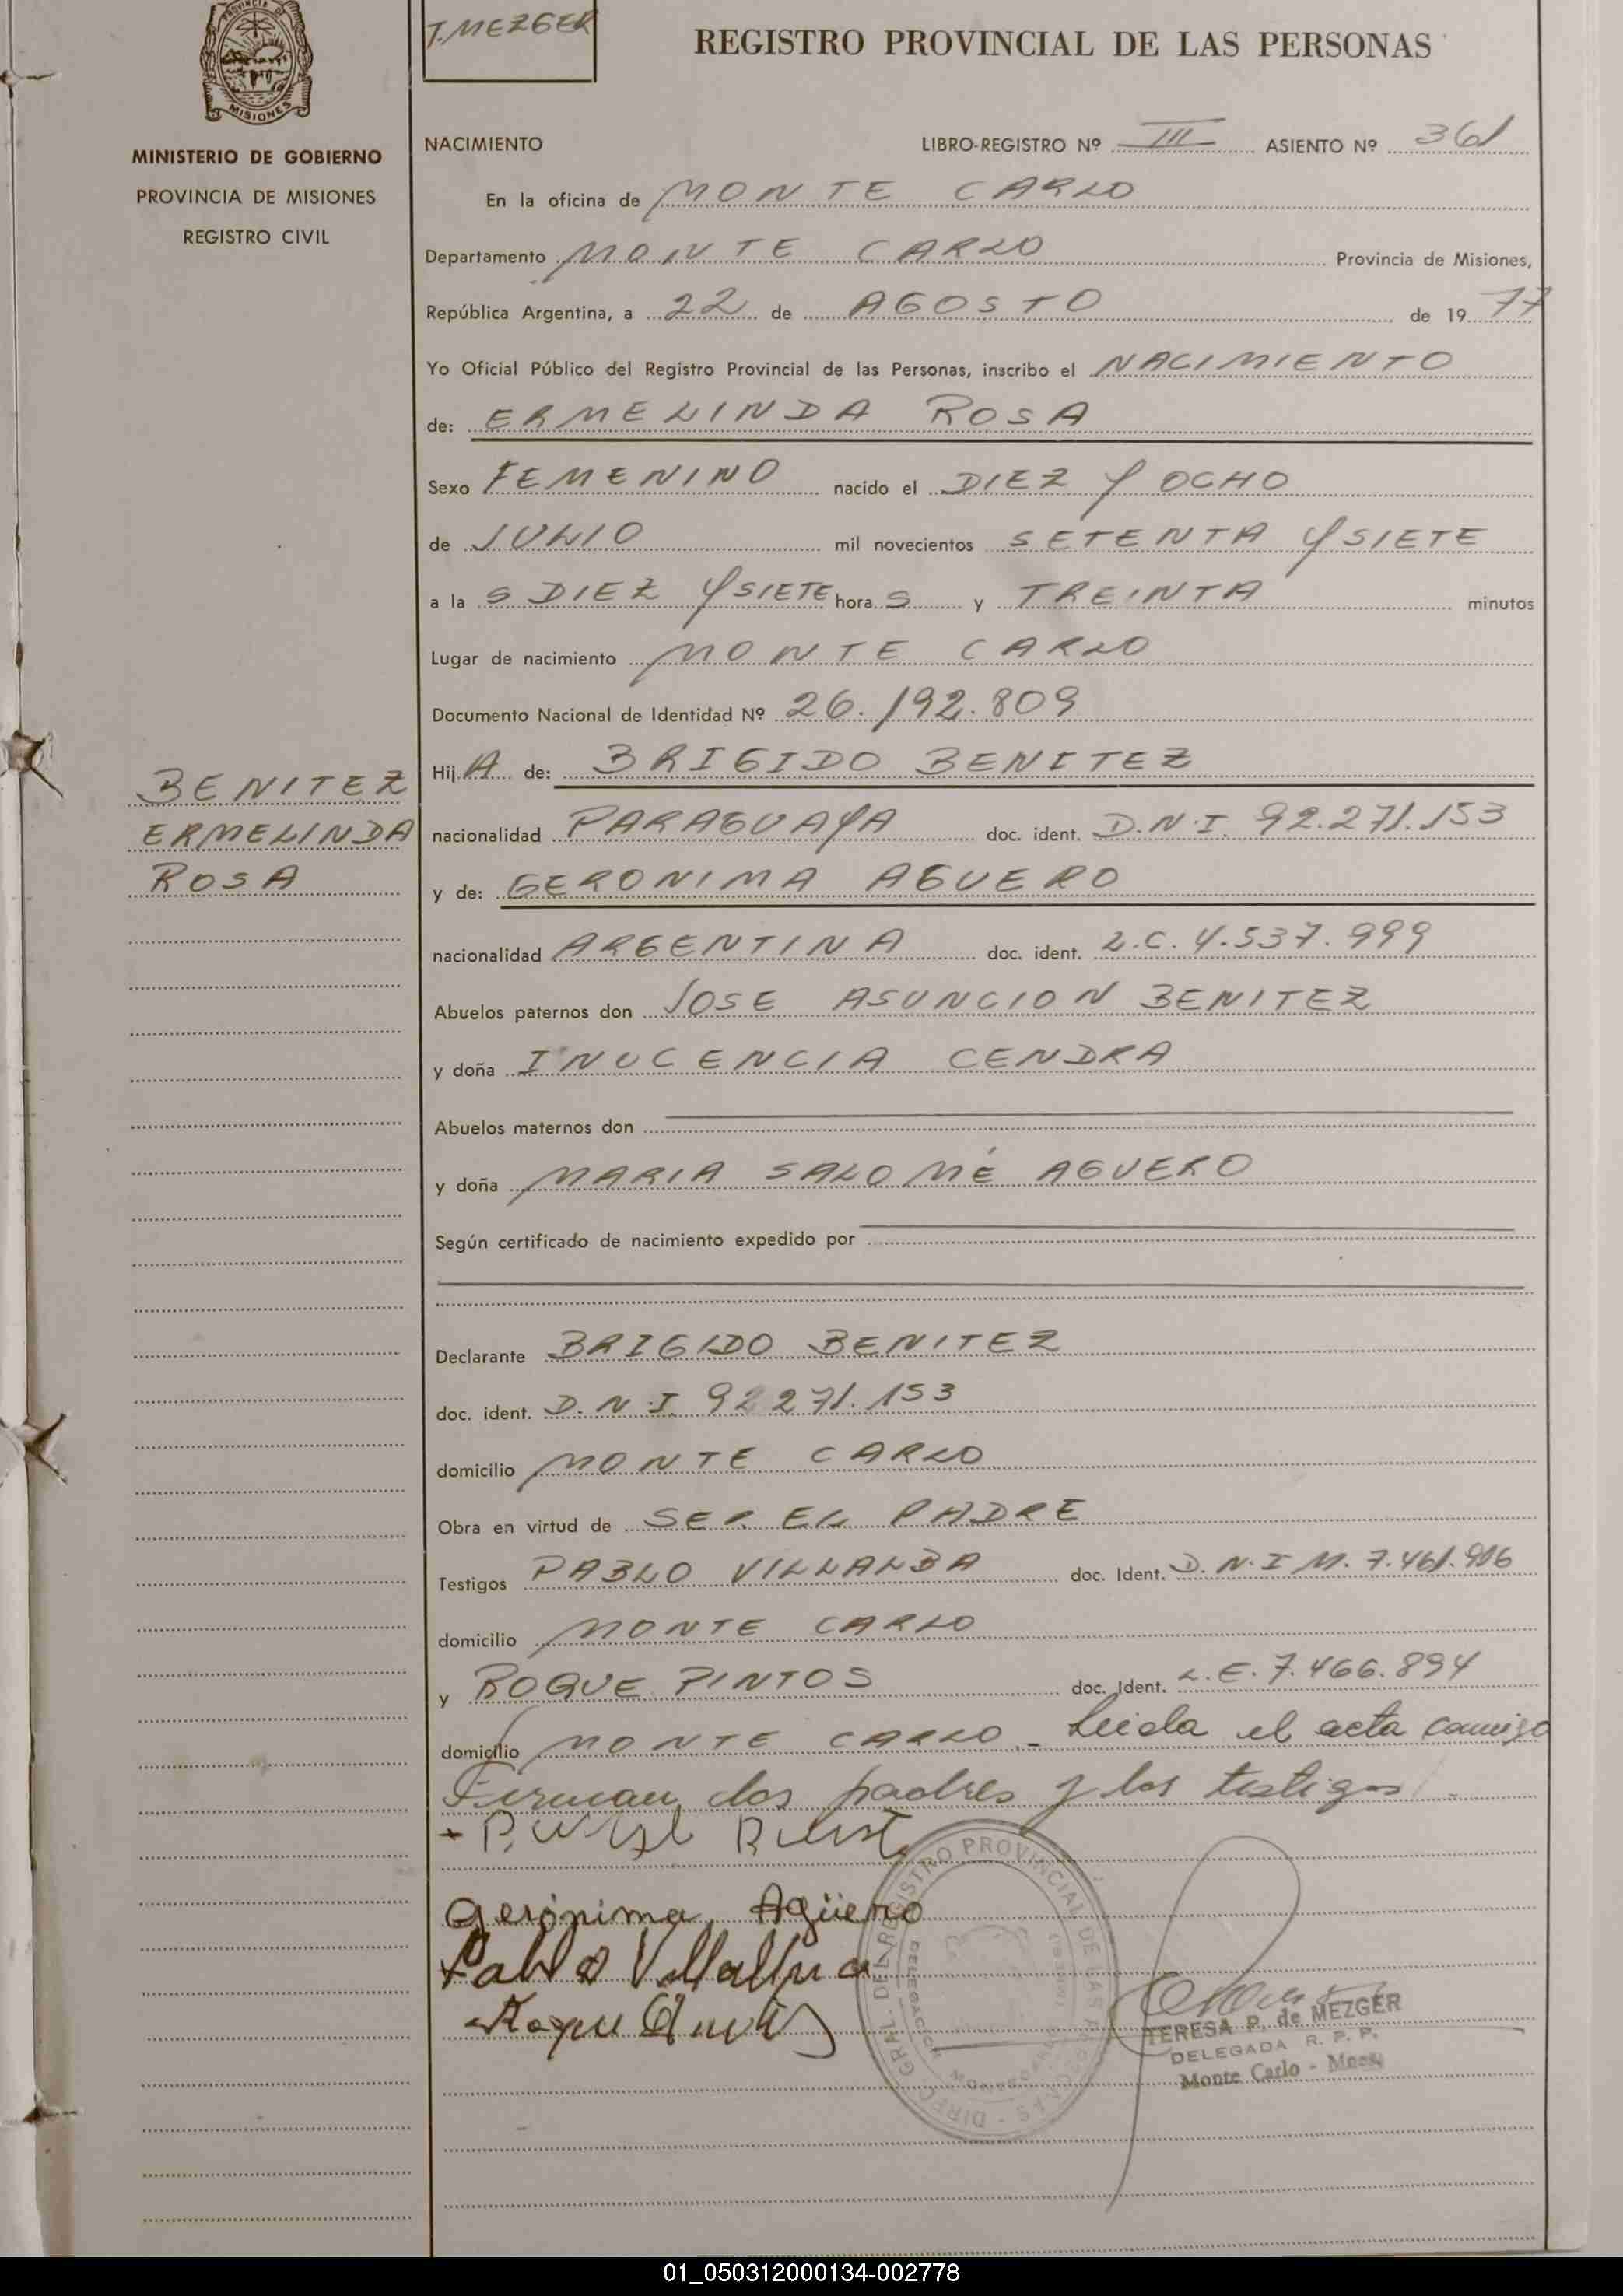 PROVINCIA DE
MISIONES
T. MEZGER
REGISTRO PROVINCIAL DE LAS PERSONAS
MINISTERIO DE GOBIERNO
PROVINCIA DE MISIONES
REGISTRO CIVIL
NACIMIENTO LIBRO-REGISTRO Nº III ASIENTO Nº 361
En la oficina de MONTE CARLO
Departamento MONTE CARLO Provincia de Misiones,
República Argentina, a 22 de AGOSTO de 1977
Yo Oficial Público del Registro Provincial de las Personas, inscribo el NACIMIENTO
de: ERMELINDA ROSA
Sexo FEMENINO nacido el DIEZ Y OCHO
de JULIO mil novecientos SETENTA Y SIETE
a la S DIEZ Y SIETE hora S y TREINTA minutos
Lugar de nacimiento MONTE CARLO
Documento Nacional de Identidad Nº 26.192.809
BENITEZ
ERMELINDA
ROSA
Hij A de: BRIGIDO BENITEZ
nacionalidad PARAGUAYA doc. ident. D.N.I. 92.271.153
y de: GERONIMA AGUERO
nacionalidad ARGENTINA doc. ident. L.C. 4.537.999
Abuelos paternos don JOSE ASUNCION BENITEZ
y doña INOCENCIA CENDRA
Abuelos maternos don
y doña MARIA SALOMÉ AGUERO
Según certificado de nacimiento expedido por
Declarante BRIGIDO BENITEZ
doc. ident. D.N.I. 92 271.153
domicilio MONTE CARLO
Obra en virtud de SER EL PADRE
Testigos PABLO VILLALBA doc. Ident. D.N.I M. 7.461.916
domicilio MONTE CARLO
y ROQUE PINTOS doc. Ident. L.E. 7.466.894
domicilio MONTE CARLO - Leida el acta conmigo
Firman los padres y los testigos.-
Gerónima Agüero
Pablo Villalba
Roque
DIREC. GRAL. DEL REGISTRO PROVINCIAL DE LAS PERSONAS
DELEGACION
TERESA P. de MEZGER
DELEGADA R. P. P.
Monte Carlo - Mnes.
01_050312000134-002778